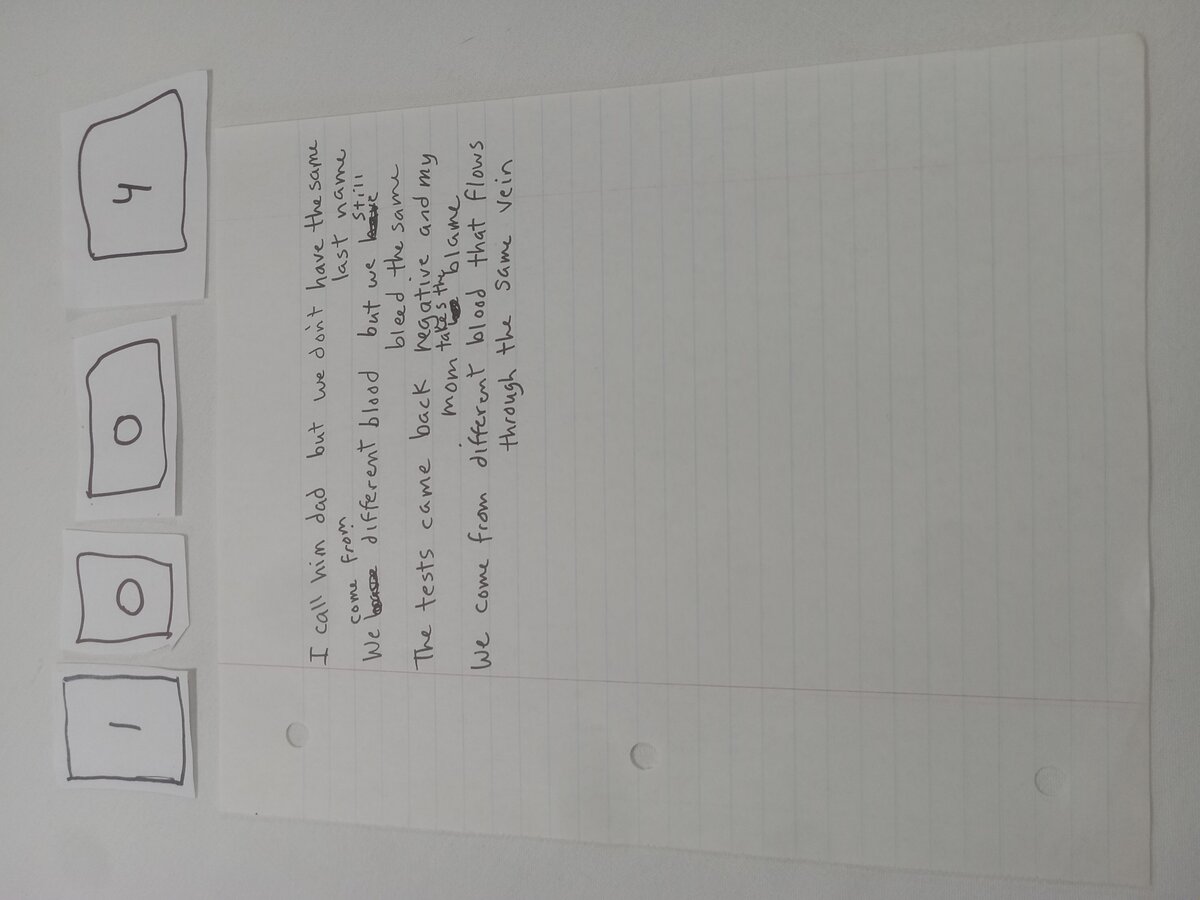 1 0 0 4
I call him dad but we don't have the same
last name
come from
We different blood but we still
bleed the same
The tests came back negative and my
mom takes the blame
We come from different blood that flows
through the same vein